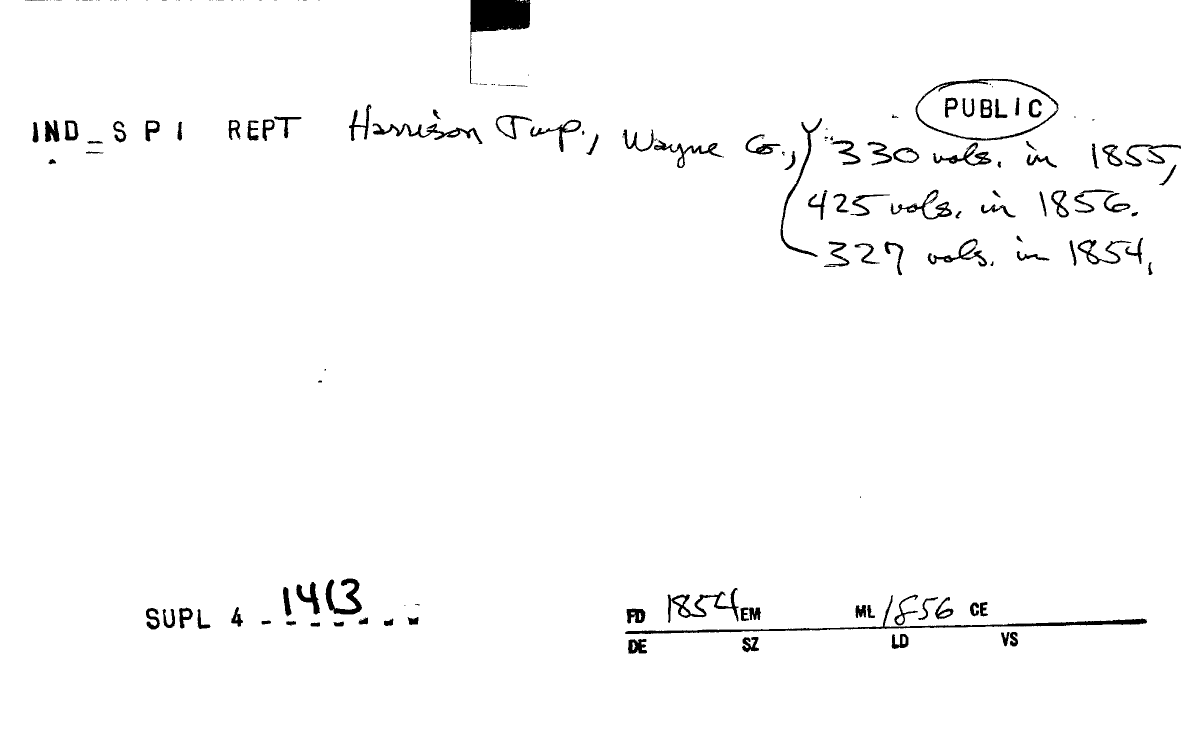 PUBLIC
IND_S P I REPT Harrison Twp., Wayne Co., 330 vols. in 1855,
425 vols. in 1856.
327 vols. in 1854,
SUPL 4 - 1413
FD 1854 EM ML 1856 CE
DE SZ LD VS